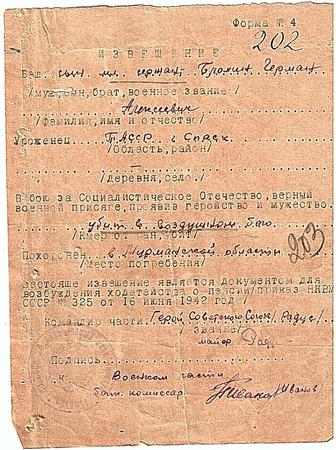 Форма № 4
202
ИЗВЕЩЕНИЕ
Ваш сын мл. сержант Бролин Герман
/муж,сын,брат,военное звание/
Алексеевич
/фамилия,имя и отчество/
Уроженец ТАССР г.
/Область,район/
/деревня,село./
В бою за Социалистическое Отечество, верный
военной присяге, проявив геройство и мужество.
убит в воздушном бою
Похоронен. в Мурманской области
203
/Место погребения/
Настояше извешение является документом для
возбуждения ходатайства о пенсии/приказ НКВМ
СССР № 325 от 16 июня 1942 год/
Командир части Герой Советского Союза /
/звание/
майор
Подпись
Военком части
бат. комиссар Иванов